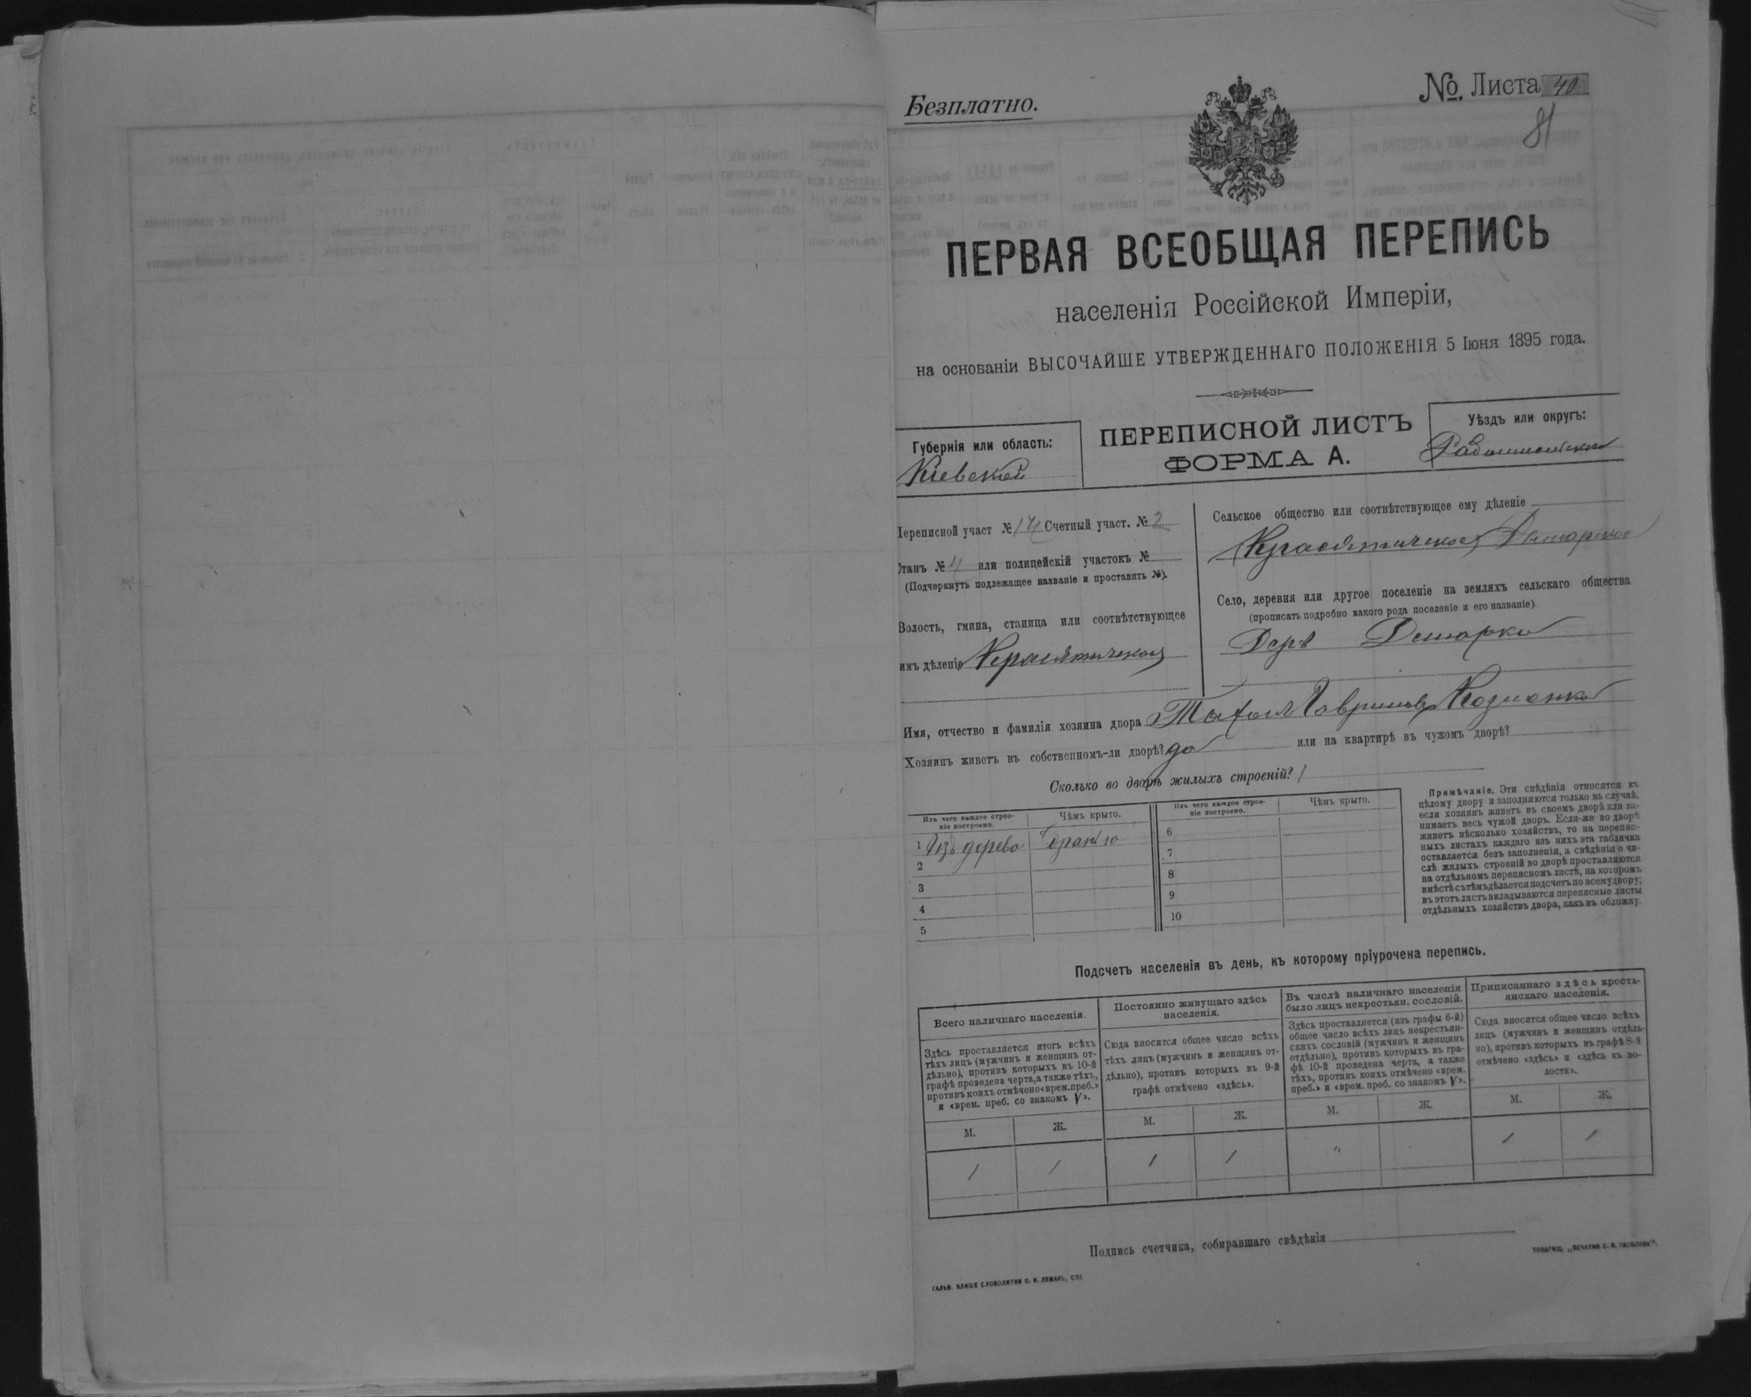 Безплатно.
№. Листа 40
81
ПЕРВАЯ ВСЕОБЩАЯ ПЕРЕПИСЬ
населенія Россійской Имперіи,
на основаніи ВЫСОЧАЙШЕ УТВЕРЖДЕННАГО ПОЛОЖЕНІЯ 5 Іюня 1895 года.
Губернія или область:
Кіевской
ПЕРЕПИСНОЙ ЛИСТЪ
ФОРМА А.
Уѣздъ или округъ:
Переписной участ № 14 Счетный участ. № 2
Станъ № 4 или полицейскій участокъ №
(Подчеркнуть подлежащее названіе и проставить №).
Волость, гмина, станица или соотвѣтствующее
имъ дѣленіе Красятическая
Сельское общество или соотвѣтствующее ему дѣленіе
Красятическое
Село, деревня или другое поселеніе на земляхъ сельскаго общества
(прописать подробно какого рода поселеніе и его названіе).
Дер
Имя, отчество и фамилія хозяина двора Гаврилов
Хозяинъ живетъ въ собственномъ-ли дворѣ? да или на квартирѣ въ чужомъ дворѣ?
Сколько во дворѣ жилыхъ строеній? 1
Изъ чего каждое строе-
ніе построено.
Чѣмъ крыто.
1 Изъ дерева
2
3
4
5
Изъ чего каждое строе-
ніе построено.
Чѣмъ крыто.
6
7
8
9
10
Примѣчаніе. Эти свѣдѣнія относятся къ
цѣлому двору и заполняются только въ случаѣ,
если хозяинъ живетъ въ своемъ дворѣ или за-
нимаетъ весь чужой дворъ. Если-же во дворѣ
живетъ нѣсколько хозяйствъ, то на перепис-
ныхъ листахъ каждаго изъ нихъ эта табличка
оставляется безъ заполненія, а свѣдѣнія о чи-
слѣ жилыхъ строеній во дворѣ проставляются
на отдѣльномъ переписномъ листѣ, на которомъ
вмѣстѣ съ тѣмъ дѣлается подсчетъ по всему двору;
въ этотъ листъ вкладываются переписные листы
отдѣльныхъ хозяйствъ двора, какъ въ обложку.
Подсчетъ населенія въ день, къ которому пріурочена перепись.
Всего наличнаго населенія.
Здѣсь проставляется итогъ всѣхъ
тѣхъ лицъ (мужчинъ и женщинъ от-
дѣльно), противъ которыхъ въ 10-й
графѣ проведена черта, а также тѣхъ,
противъ коихъ отмѣчено «врем. преб.»
и «врем. преб. со знакомъ V».
М. Ж.
1 1
Постоянно живущаго здѣсь
населенія.
Сюда вносится общее число всѣхъ
тѣхъ лицъ (мужчинъ и женщинъ от-
дѣльно), противъ которыхъ въ 9-й
графѣ отмѣчено «здѣсь».
М. Ж.
1 1
Въ числѣ наличнаго населенія
было лицъ некрестьян. сословій.
Здѣсь проставляется (изъ графы 6-й)
общее число всѣхъ лицъ некрестьян-
скихъ сословій (мужчинъ и женщинъ
отдѣльно), противъ которыхъ въ гра-
фѣ 10-й проведена черта, а также
тѣхъ, противъ коихъ отмѣчено «врем.
преб.» и «врем. преб. со знакомъ V».
М. Ж.
"
Приписаннаго здѣсь кресть-
янскаго населенія.
Сюда вносится общее число всѣхъ
лицъ (мужчинъ и женщинъ отдѣль-
но), противъ которыхъ въ графѣ 8-й
отмѣчено «здѣсь» и «здѣсь въ во-
лости».
М. Ж.
1 1
Подпись счетчика, собиравшаго свѣдѣнія
ГАЛЬВ. КЛИШЕ СЛОВОЛИТНИ О. И. ЛЕМАНЪ, СПБ
ТОВАРИЩ. „ПЕЧАТНЯ С. П. ЯКОВЛЕВА".